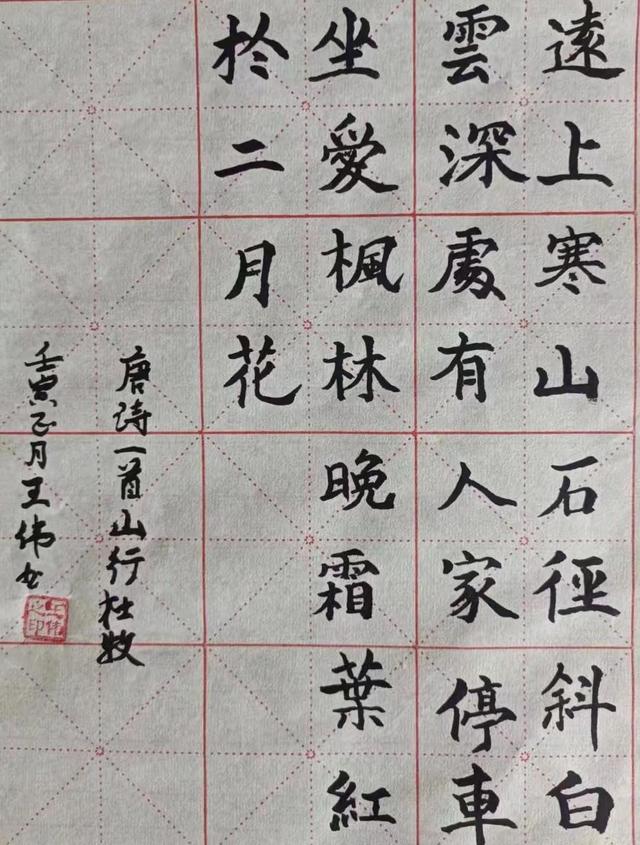 遠上寒山石徑斜白
雲深處有人家停車
坐愛楓林晚霜葉紅
於二月花
唐诗一首山行杜牧
壬寅正月王伟书
王伟之印